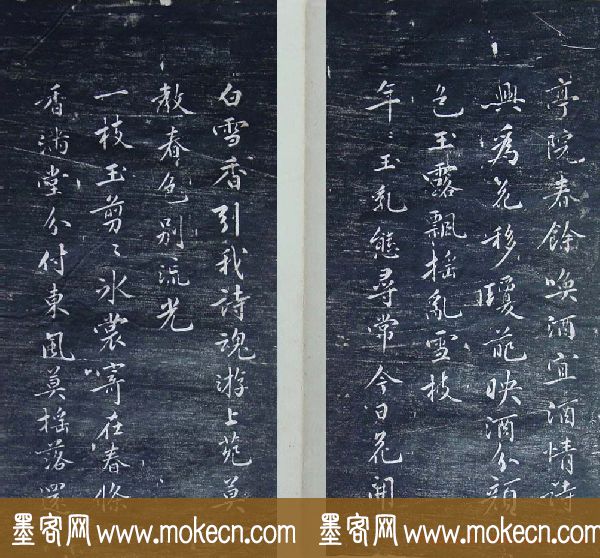 亭院春餘喚酒宜酒情詩
興為花移瓊葩映酒分顏
色玉露飄搖亂雪枝
年〻玉乳態尋常今日花開
白雪香引我詩魂游上苑莫
教春色別流光
一枝玉剪〻冰裳寄在春條
香滿堂分付東風莫搖落
墨客网 www.mokecn.com
墨客网 www.mokecn.com